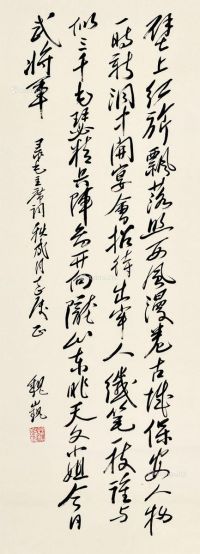 壁上红旗飘落照西风漫卷古城保安人物
一时新洞中开宴会招待出牢人纤笔一枝谁与
似三千毛瑟精兵阵图开向陇山东昨天文小姐今日
武将军
录毛主席词 正
魏巍